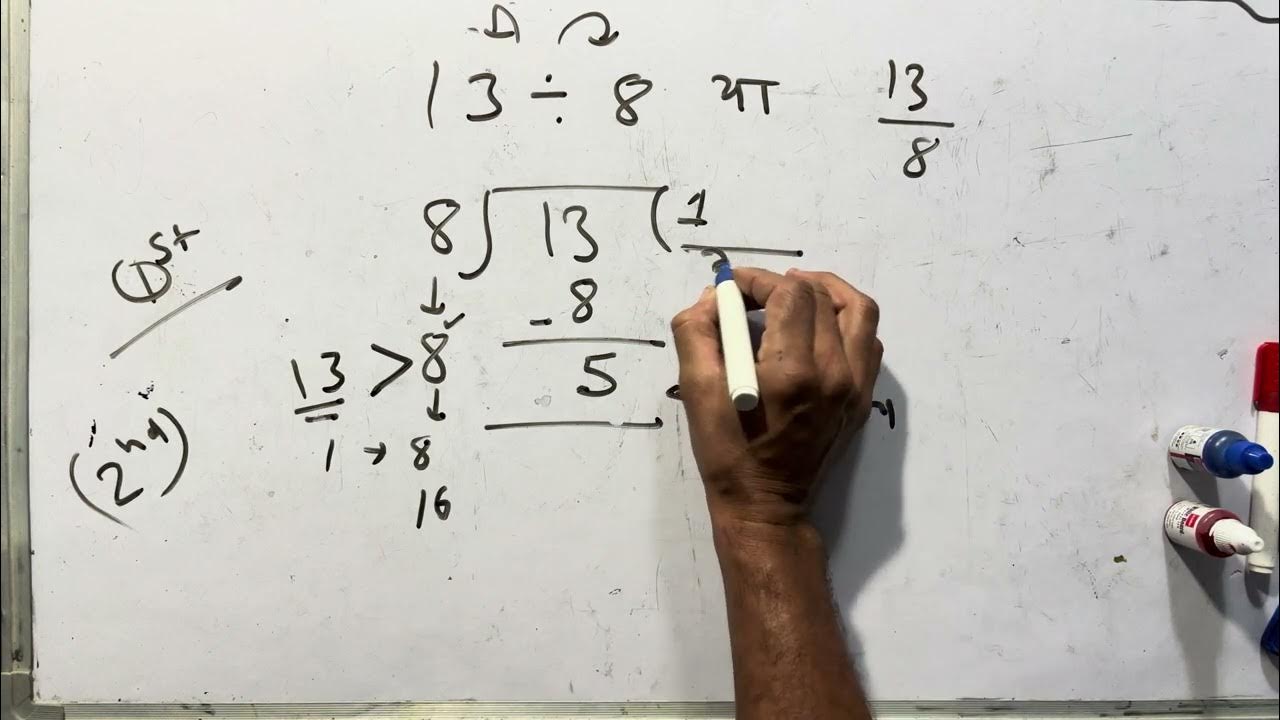 13 ÷ 8 या 13/8
8 ) 13 ( 1
- 8
5
1st
13 > 8
1 → 8
16
(2nd)